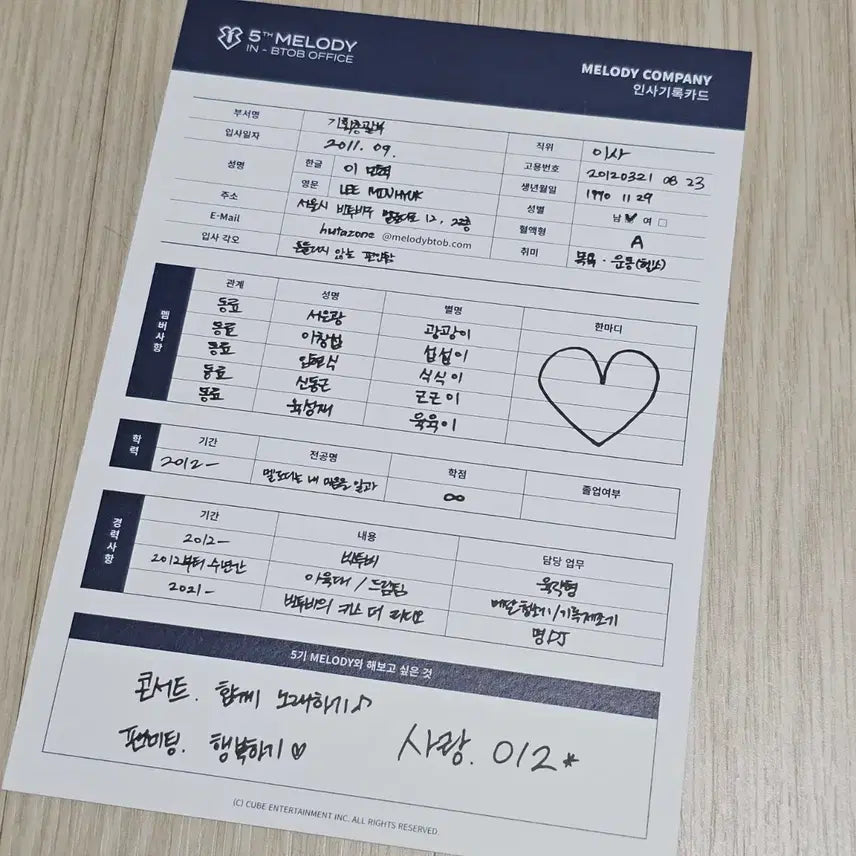 5TH MELODY
IN - BTOB OFFICE
MELODY COMPANY
인사기록카드
부서명 기획총괄부 직위 이사
입사일자 2011. 09. 고용번호 20120321 08 23
성명 한글 이 민혁 생년월일 1990 11 29
영문 LEE MINHYUK 성별 남 여
주소 서울시 비투비구 멜로디로 12, 2층 혈액형 A
E-Mail hutazone @melodybtob.com 취미 목욕 · 운동(헬스)
입사 각오 흔들리지 않는 편안함
멤버사항
관계 성명 별명 한마디
동료 서은광 광광이
동료 이창섭 섭섭이
동료 임현식 식식이
동료 신동근 근근이
동료 육성재 육육이
학력
기간 전공명 학점 졸업여부
2012 - 멜로디는 내 마음을 알까 ∞
경력사항
기간 내용 담당 업무
2012 - 비투비 육각형
2012부터 수년간 아육대 / 드림팀 메달청소기/기록제조기
2021 - 비투비의 키스 더 라디오 명DJ
5기 MELODY와 해보고 싶은 것
콘서트. 함께 노래하기♪
팬미팅. 행복하기♡
사랑. 012*
(C) CUBE ENTERTAINMENT INC. ALL RIGHTS RESERVED